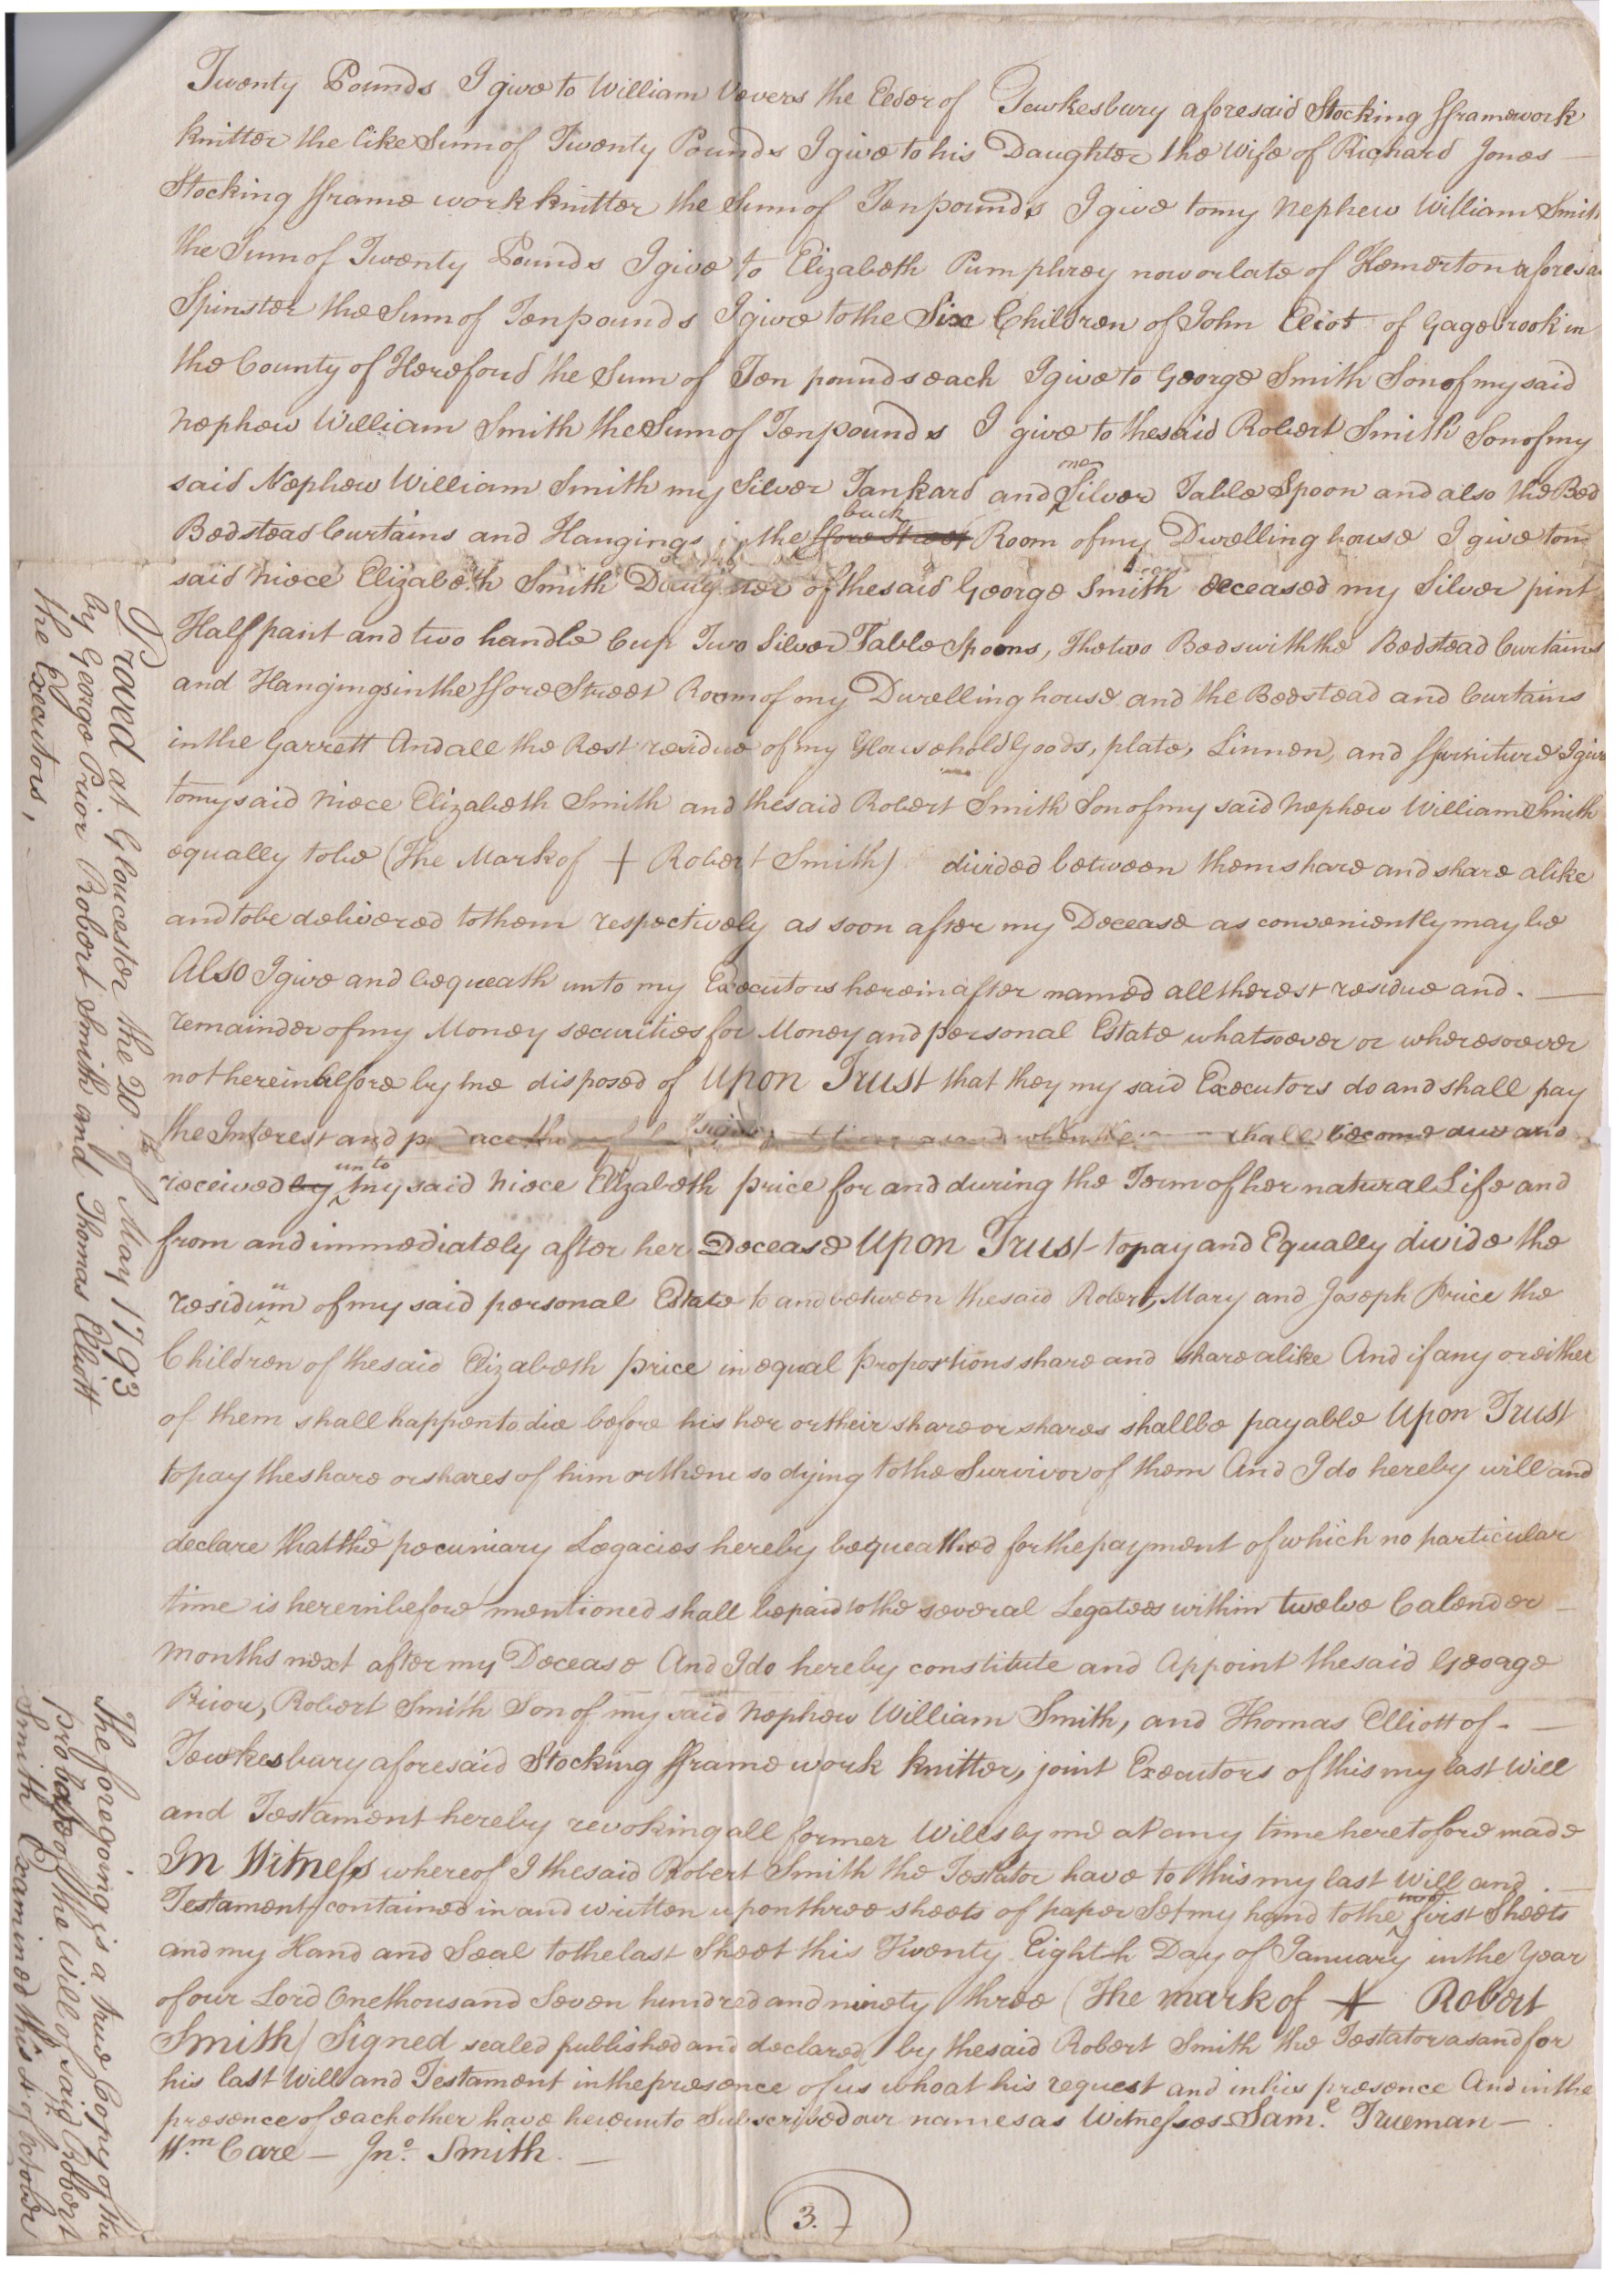 Twenty Pounds I give to William Vevers the Elder of Tewkesbury aforesaid Stocking fframework
knitter the like Sum of Twenty Pounds I give to his Daughter the Wife of Richard Jones —
Stocking fframe work knitter the Sum of Ten pounds I give to my Nephew William Smith
the Sum of Twenty Pounds I give to Elizabeth Pumphrey now or late of Kemerton aforesa
Spinster the Sum of Ten pounds I give to the Six Children of John Eliot of Gagebrook in
the County of Hereford the Sum of Ten pounds each I give to George Smith Son of my said
Nephew William Smith the Sum of Ten pounds I give to the said Robert Smith Son of my
said Nephew William Smith my Silver Tankard and one Silver Table Spoon and also the Bed
Bedstead Curtains and Hangings in the ffore Street back Room of my Dwelling house I give to my
said Niece Elizabeth Smith Daughter of the said George Smith deceased my Silver pint
Half paint and two handle Cup Two Silver Table Spoons, The two Beds with the Bedstead Curtains
and Hangings in the ffore Street Room of my Dwelling house and the Bedstead and Curtains
in the Garrett And all the Rest residue of my Household Goods, plate, Linnen, and ffurniture I give
to my said Niece Elizabeth Smith and the said Robert Smith Son of my said Nephew William Smith
equally to be (The Mark of + Robert Smith) divided between them share and share alike
and to be delivered to them respectively as soon after my Decease as conveniently may be
Also I give and bequeath unto my Executors hereinafter named all the rest residue and. —
remainder of my Money securities for Money and personal Estate whatsoever or wheresoever
not hereinbefore by me disposed of Upon Trust that they my said Executors do and shall pay
the Interest and when the shall become due and
received by unto my said Niece Elizabeth Price for and during the Term of her natural Life and
from and immediately after her Decease Upon Trust to pay and Equally divide the
residuum of my said personal Estate to and between the said Robert, Mary and Joseph Price the
Children of the said Elizabeth Price in equal proportions share and share alike And if any or either
of them shall happen to die before his her or their share or shares shall be payable Upon Trust
to pay the share or shares of him or them so dying to the Survivor of them And I do hereby will and
declare that the pecuniary Legacies hereby bequeathed for the payment of which no particular
time is hereinbefore mentioned shall be paid to the several Legatees within twelve Calender —
Months next after my Decease And I do hereby constitute and Appoint the said George
Prior, Robert Smith Son of my said Nephew William Smith, and Thomas Elliott of - —
Tewkesbury aforesaid Stocking fframe work knitter, joint Executors of this my last Will
and Testament hereby revoking all former Wills by me at any time heretofore made
In Witness whereof I the said Robert Smith the Testator have to this my last Will and . —
Testament contained in and written upon three sheets of paper Set my hand to the two first Sheets
and my Hand and Seal to the last Sheet this Twenty Eighth Day of January in the Year
of our Lord One thousand Seven hundred and ninety three (The mark of + Robert
Smith) Signed sealed published and declared by the said Robert Smith the Testator as and for
his last Will and Testament in the presence of us who at his request and in his presence And in the
presence of each other have hereunto Subscribed our names as Witnesses Saml. Trueman —
Wm. Care — Jno. Smith. —
3.
Proved at Gloucester the 20th. of May 1793
by George Prior Robert Smith and Thomas Elliott
the Executors,
The foregoing is a true Copy of the
probate of the Will of said Robert
Smith Examined this of October